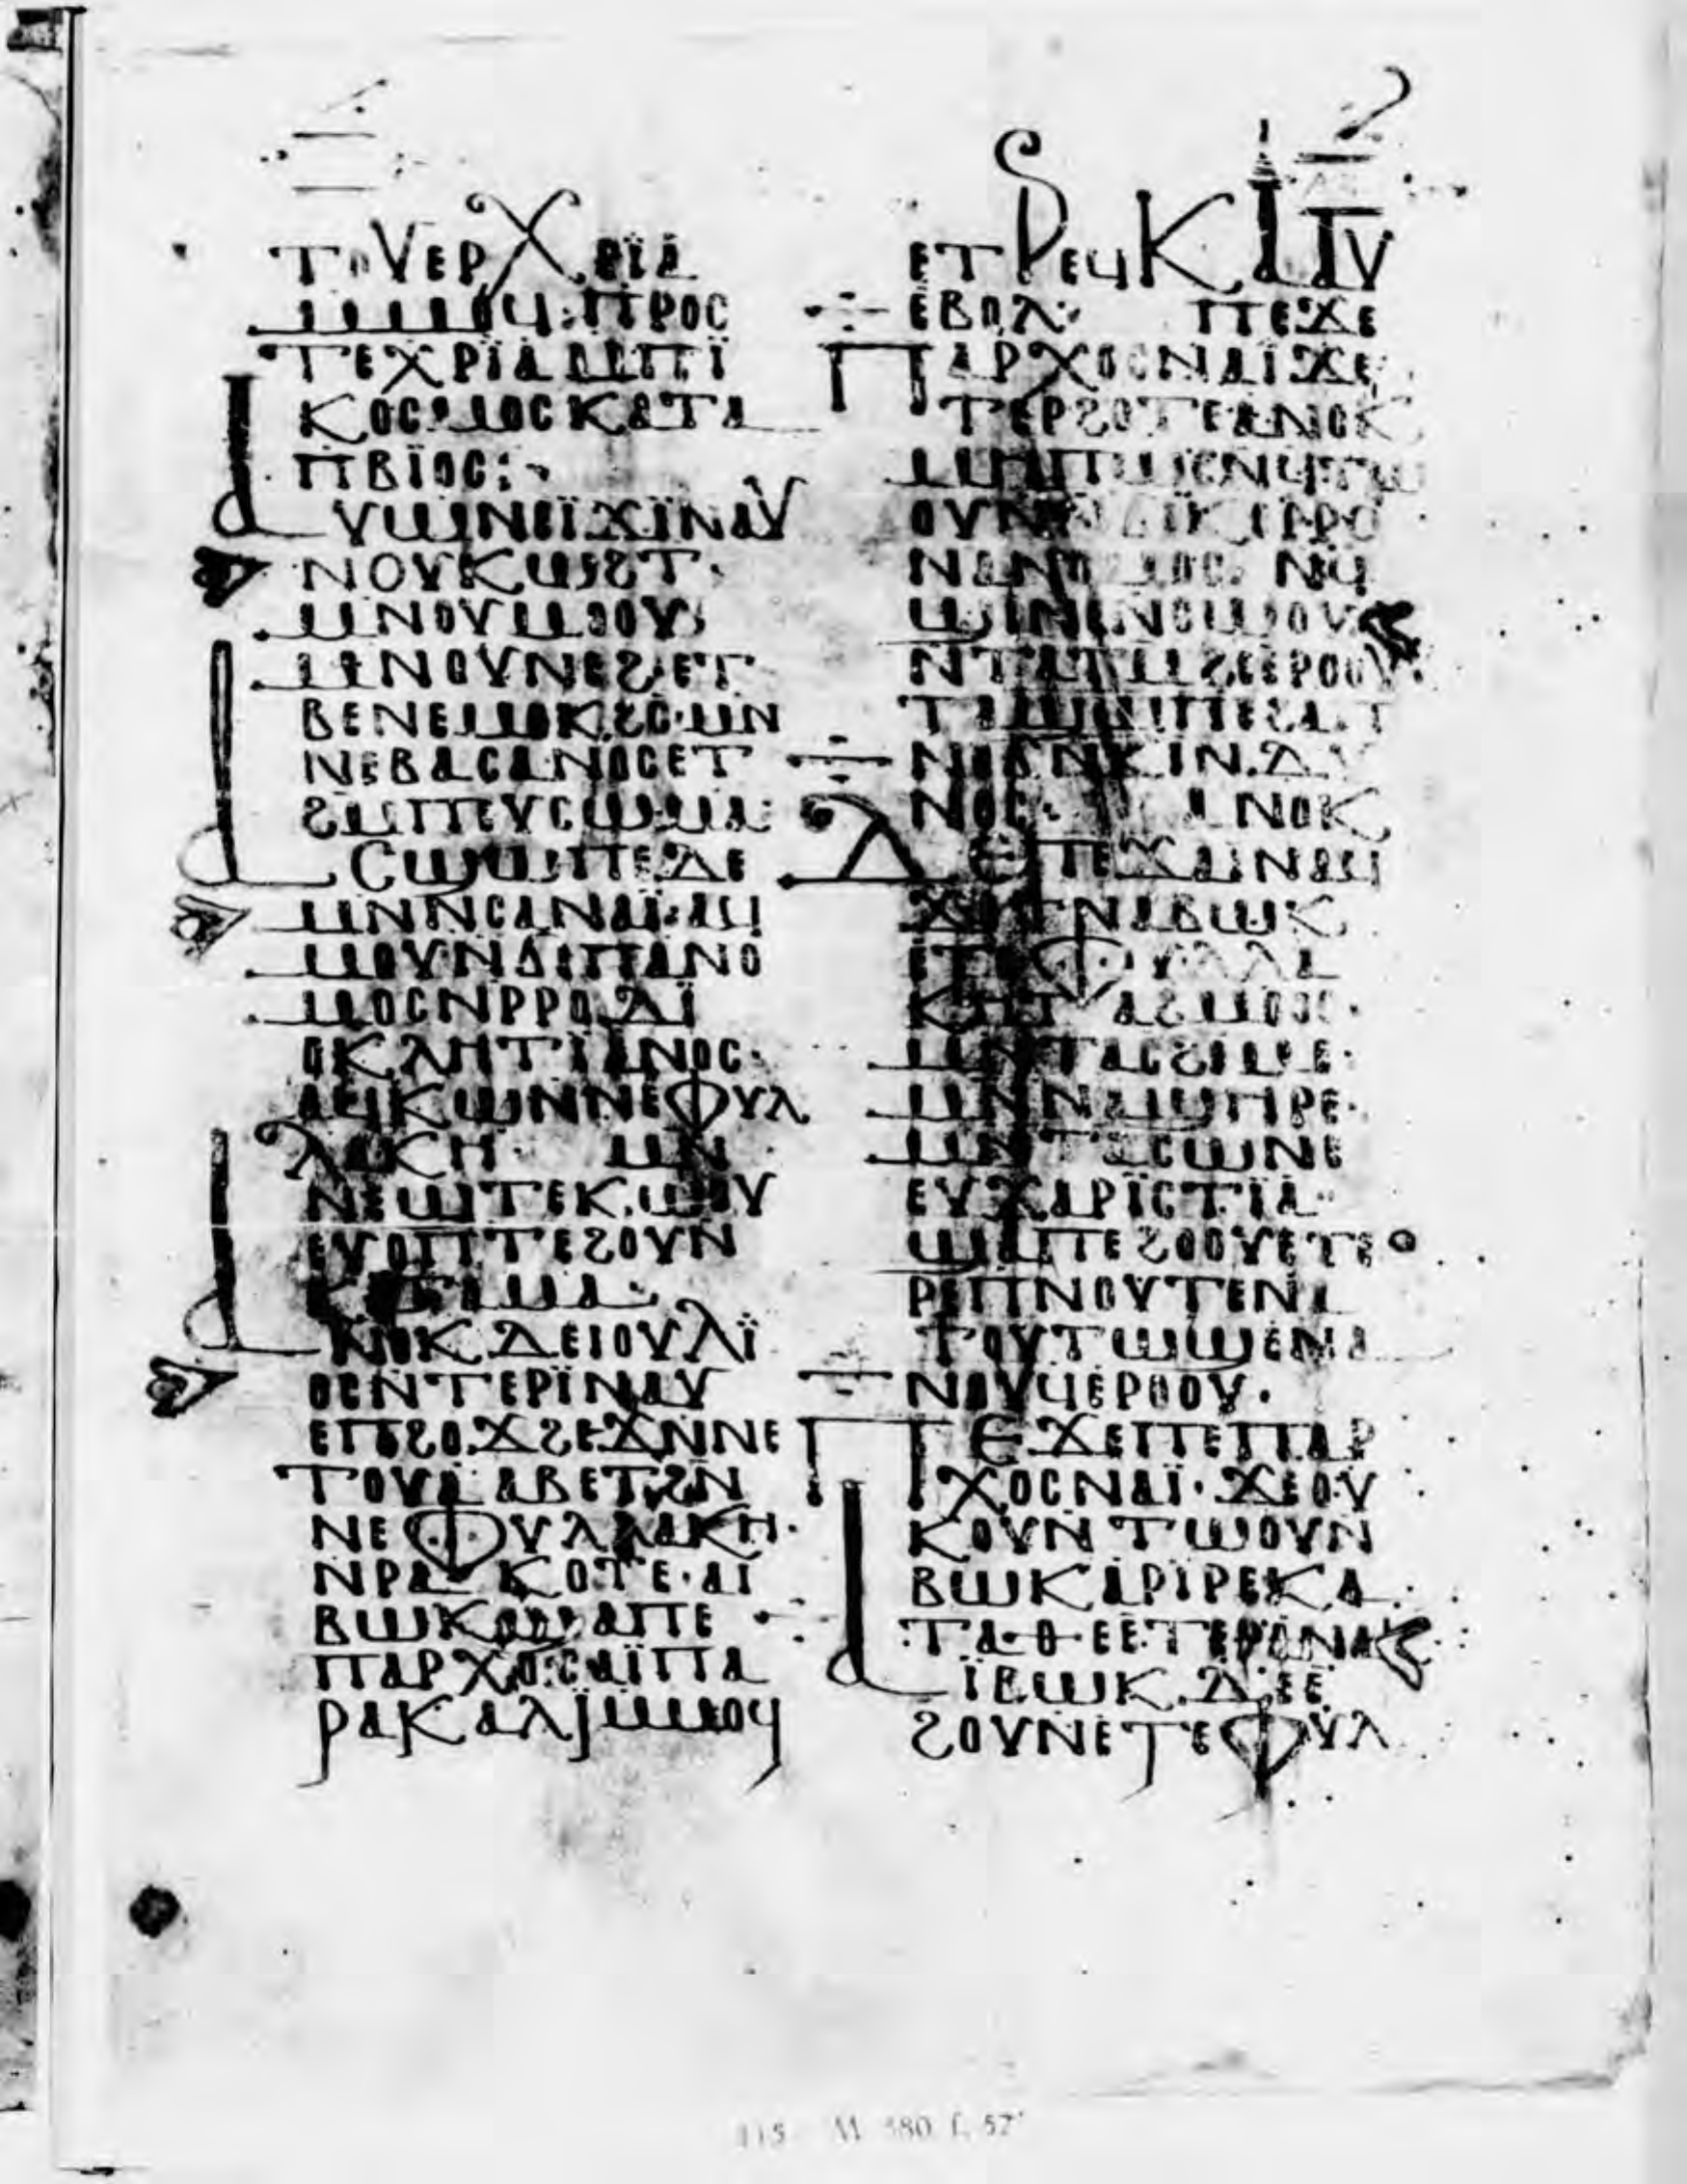 ⲧⲟⲩⲉⲣⲭⲣⲓⲁ
ⲙⲙⲟϥ:ⲡⲣⲟⲥ
ⲧⲉⲭⲣⲓⲁⲙⲡⲓ
ⲕⲟⲥⲙⲟⲥⲕⲁⲧⲁ
ⲡⲃⲓⲟⲥ:
ⲁⲩⲱⲛⲉⲓϫⲓⲛⲁⲩ
ⲛⲟⲩⲕⲱϩⲧ·
ⲙⲛⲟⲩⲙⲟⲟⲩ
ⲙⲛⲟⲩⲛⲉϩⲉⲧ
ⲃⲉⲛⲉⲙⲟⲕϩⲥ·ⲙⲛ
ⲛⲉⲃⲁⲥⲁⲛⲟⲥⲉⲧ
ϩⲙⲡⲉⲩⲥⲱⲙⲁ:
ⲁⲥϣⲱⲡⲉⲇⲉ
ⲙⲛⲛⲥⲁⲛⲁⲓ·ⲁϥ
ⲙⲟⲩⲛϭⲓⲡⲁⲛⲟ
ⲙⲟⲥⲛⲣⲣⲟⲇⲓ
ⲟⲕⲗⲏⲧⲓⲁⲛⲟⲥ·
ⲁϥⲕⲱⲛⲛⲉⲫⲩⲗ
ⲗⲁⲕⲏ ⲙⲛ
ⲛⲉϣⲧⲉⲕⲱⲟⲩ
ⲉⲩⲟⲡⲧⲉϩⲟⲩⲛ
ⲁⲛⲟⲕⲇⲉⲓⲟⲩⲗⲓ
ⲟⲥⲛⲧⲉⲣⲓⲛⲁⲩ
ⲉⲡϩⲟϫϩⲉϫⲛⲛⲉ
ⲧⲟⲩⲁⲁⲃⲉⲧϩⲛ
ⲛⲉⲫⲩⲗⲗⲁⲕⲏ·
ⲛⲣⲁⲕⲟⲧⲉ·ⲁⲓ
ⲃⲱⲕϣⲁⲡⲉ
ⲡⲁⲣⲭⲟⲥⲁⲓⲡⲁ
ⲣⲁⲕⲁⲗⲓⲙⲙⲟϥ
ⲉⲧⲣⲉϥⲕⲁⲁⲩ
ⲉⲃⲟⲗ· ⲡⲉϫⲉ
ⲡⲁⲣⲭⲟⲥⲛⲁⲓϫⲉ
ϯⲉⲣϩⲟⲧⲉⲁⲛⲟⲕ
ⲙⲏⲡⲱⲥⲛϥⲧⲱ
ⲟⲩⲛ
ⲛⲁⲛⲟⲙⲟⲥ ⲛϥ
ϣⲓⲛⲓⲛⲥⲱⲟⲩ
ⲛⲧⲁⲧⲙϩⲉⲉⲣⲟⲟⲩ·
ⲧⲁϣⲱⲡⲉϩⲁⲧ
ⲛⲟϭⲛⲕⲓⲛⲇⲩ
ⲛⲟⲥ· ⲁⲛⲟⲕ
ⲇⲉⲡⲉϫⲁⲓⲛⲁϥ
ϫⲉϯⲛⲁⲃⲱⲕ
ⲉⲧⲉⲫⲩⲗⲗⲁ
ⲕⲏ ⲧⲁϩⲙⲟⲟⲥ·
ⲙⲛⲧⲁⲥϩⲓⲙⲉ·
ⲙⲛⲛⲁϣⲏⲣⲉ·
ⲙⲛⲧⲁⲥⲱⲛⲉ
ⲉⲩⲭⲁⲣⲓⲥⲧⲓⲁ·
ϣⲁⲡⲉϩⲟⲟⲩⲉⲧⲉ
ⲣⲉⲡⲛⲟⲩⲧⲉⲛⲁ
ⲧⲟⲩⲧⲱϣⲉⲛⲁ
ⲛⲟⲩϥⲉⲣⲟⲟⲩ·
ⲡⲉϫⲉⲡⲉⲡⲁⲣ
ⲭⲟⲥⲛⲁⲓ·ϫⲉⲟⲩ
ⲕⲟⲩⲛⲧⲱⲟⲩⲛ
ⲃⲱⲕⲁⲣⲓⲣⲉⲕⲁ
ⲧⲁⲑⲉⲉⲧⲉⲣⲁⲛⲁⲕ
ⲁⲓⲃⲱⲕⲇⲉⲉ
ϩⲟⲩⲛⲉⲧⲉⲫⲩⲗ
115 M 580 f. 52